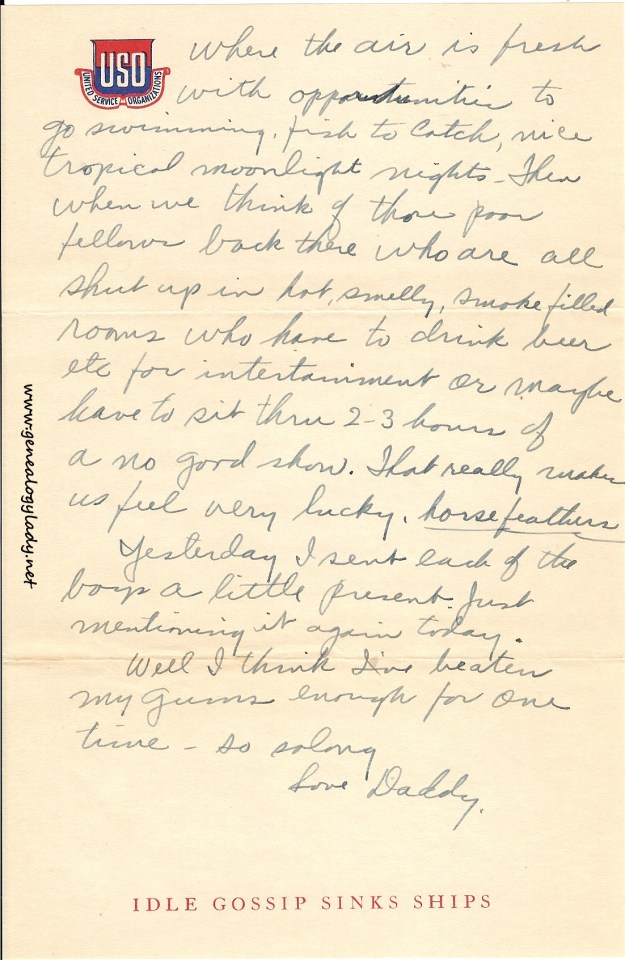 USO
UNITED SERVICE ORGANIZATIONS
where the air is fresh
with opportunities to
go swimming, fish to catch, nice
tropical moonlight nights - Then
when we think of those poor
fellows back there who are all
shut up in hot, smelly, smoke filled
rooms who have to drink beer
etc for intertainment or maybe
have to sit thru 2-3 hours of
a no good show. That really makes
us feel very lucky. horsefeathers
Yesterday I sent each of the
boys a little present. Just
mentioning it again today.
Well I think I've beaten
my gums enough for one
time - so solong
Love Daddy.
IDLE GOSSIP SINKS SHIPS
www.genealogylady.net